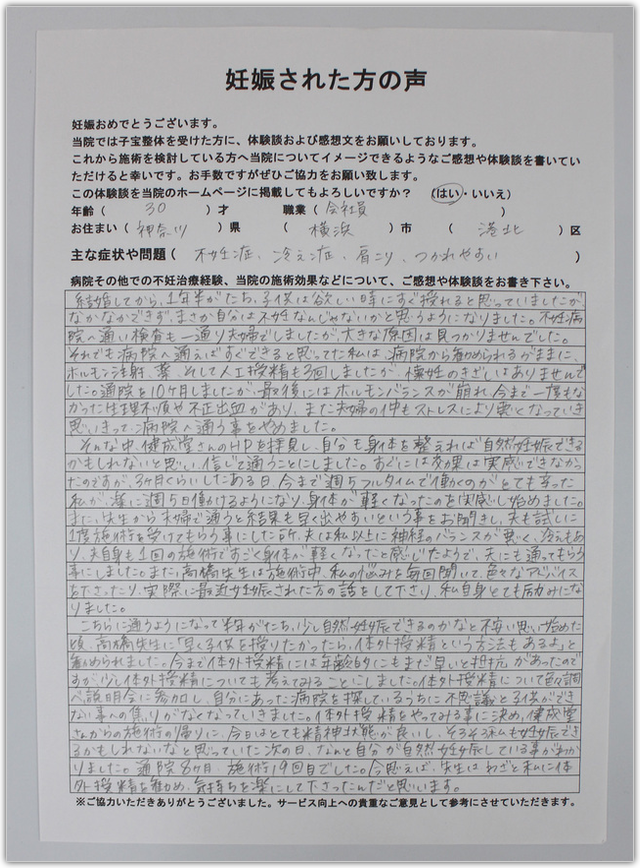 妊娠された方の声
妊娠おめでとうございます。
当院では子宝整体を受けた方に、体験談および感想文をお願いしております。
これから施術を検討している方へ当院についてイメージできるようなご感想や体験談を書いてい
ただけると幸いです。お手数ですがぜひご協力をお願い致します。
この体験談を当院のホームページに掲載してもよろしいですか？ （はい・いいえ）
年齢（ 30 ）才 職業（ 会社員 ）
お住まい（ 神奈川 ）県 （ 横浜 ）市 （ 港北 ）区
主な症状や問題（ 不妊症、冷え症、肩こり、つかれやすい ）
病院その他での不妊治療経験、当院の施術効果などについて、ご感想や体験談をお書き下さい。
結婚してから、1年半がたち、子供は欲しい時にすぐ授れると思っていましたが、
なかなかできず、まさか自分は不妊なんじゃないかと思うようになりました。不妊病
院へ通い検査も一通り夫婦でしましたが、大きな原因は見つかりませんでした。
それでも病院へ通えばすぐできると思ってた私は、病院から勧められるがままに、
ホルモン注射、薬、そして人工授精も3回しましたが、懐妊のきざしはありませんで
した。通院を10ヶ月しましたが、最後にはホルモンバランスが崩れ、今まで一度もな
かった生理不順や不正出血があり、また夫婦の仲もストレスにより悪くなっていき
思いきって、病院へ通う事をやめました。
そんな中、健成堂さんのHPを拝見し、自分も身体を整えれば自然妊娠できる
かもしれないと思い、信じて通うことにしました。すぐには効果は実感できなかっ
たのですが、3ヶ月くらいしたある日、今まで週5フルタイムで働くのがとても辛った
私が、楽に週5日働けるようになり、身体が軽くなったのを実感し始めました。
また、先生から夫婦で通うと結果も早く出やすいという事をお聞きし、夫も試しに
1度施術を受けてもらう事にした所、夫は私以上に神経のバランスが悪く、冷えもあ
り、夫自身も1回の施術ですごく身体が軽くなったと感じたようで、夫にも通ってもらう
事にしました。また、高橋先生は施術中、私の悩みを毎回聞いて、色々なアドバイス
を下さったり、実際に最近妊娠された方の話をして下さり、私自身とても励みにな
りました。
こちらに通うようになって半年がたち、少し自然妊娠できるのかなと不安に思い始めた
頃、高橋先生に「早く子供を授りたかったら、体外授精という方法もあるよ」と
勧められました。今まで体外授精には年齢的にもまだ早いと抵抗があったので
すが、少し体外授精についても考えてみることにしました。体外授精について色々調
べ説明会に参加し、自分にあった病院を探しているうちに不思議と子供ができ
ない事への焦りがなくなっていきました。体外授精をやってみる事に決め、健成堂
さんからの施術の帰りに、今日はとても精神状態が良いし、そろそろ私も妊娠でき
るかもしれないなと思っていた次の日、なんと自分が自然妊娠している事がわか
りました。通院8ヶ月、施術19回目でした。今思えば、先生はわざと私に体
外授精を勧め、気持ちを楽にして下さったんだと思います。
※ご協力いただきありがとうございました。サービス向上への貴重なご意見として参考にさせていただきます。